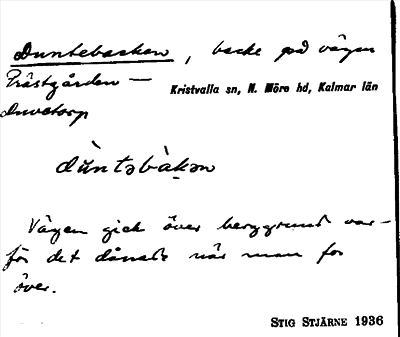 Duntebacken, backe på vägen
Prästgården —
Kristvalla sn, N. Möre hd, Kalmar län
Duvetorp
dùntəbàkən
Vägen gick över berggrund var-
för det dånade när man for
över.
STIG STJÄRNE 1936